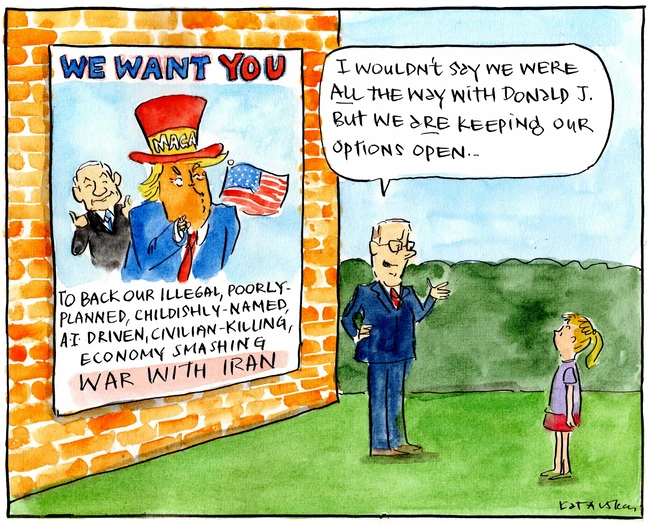 WE WANT YOU
MAGA
TO BACK OUR ILLEGAL, POORLY-
PLANNED, CHILDISHLY-NAMED,
A.I. DRIVEN, CIVILIAN-KILLING,
ECONOMY SMASHING
WAR WITH IRAN
I WOULDN'T SAY WE WERE
ALL THE WAY WITH DONALD J.
BUT WE ARE KEEPING OUR
OPTIONS OPEN...
KATAUSKAS